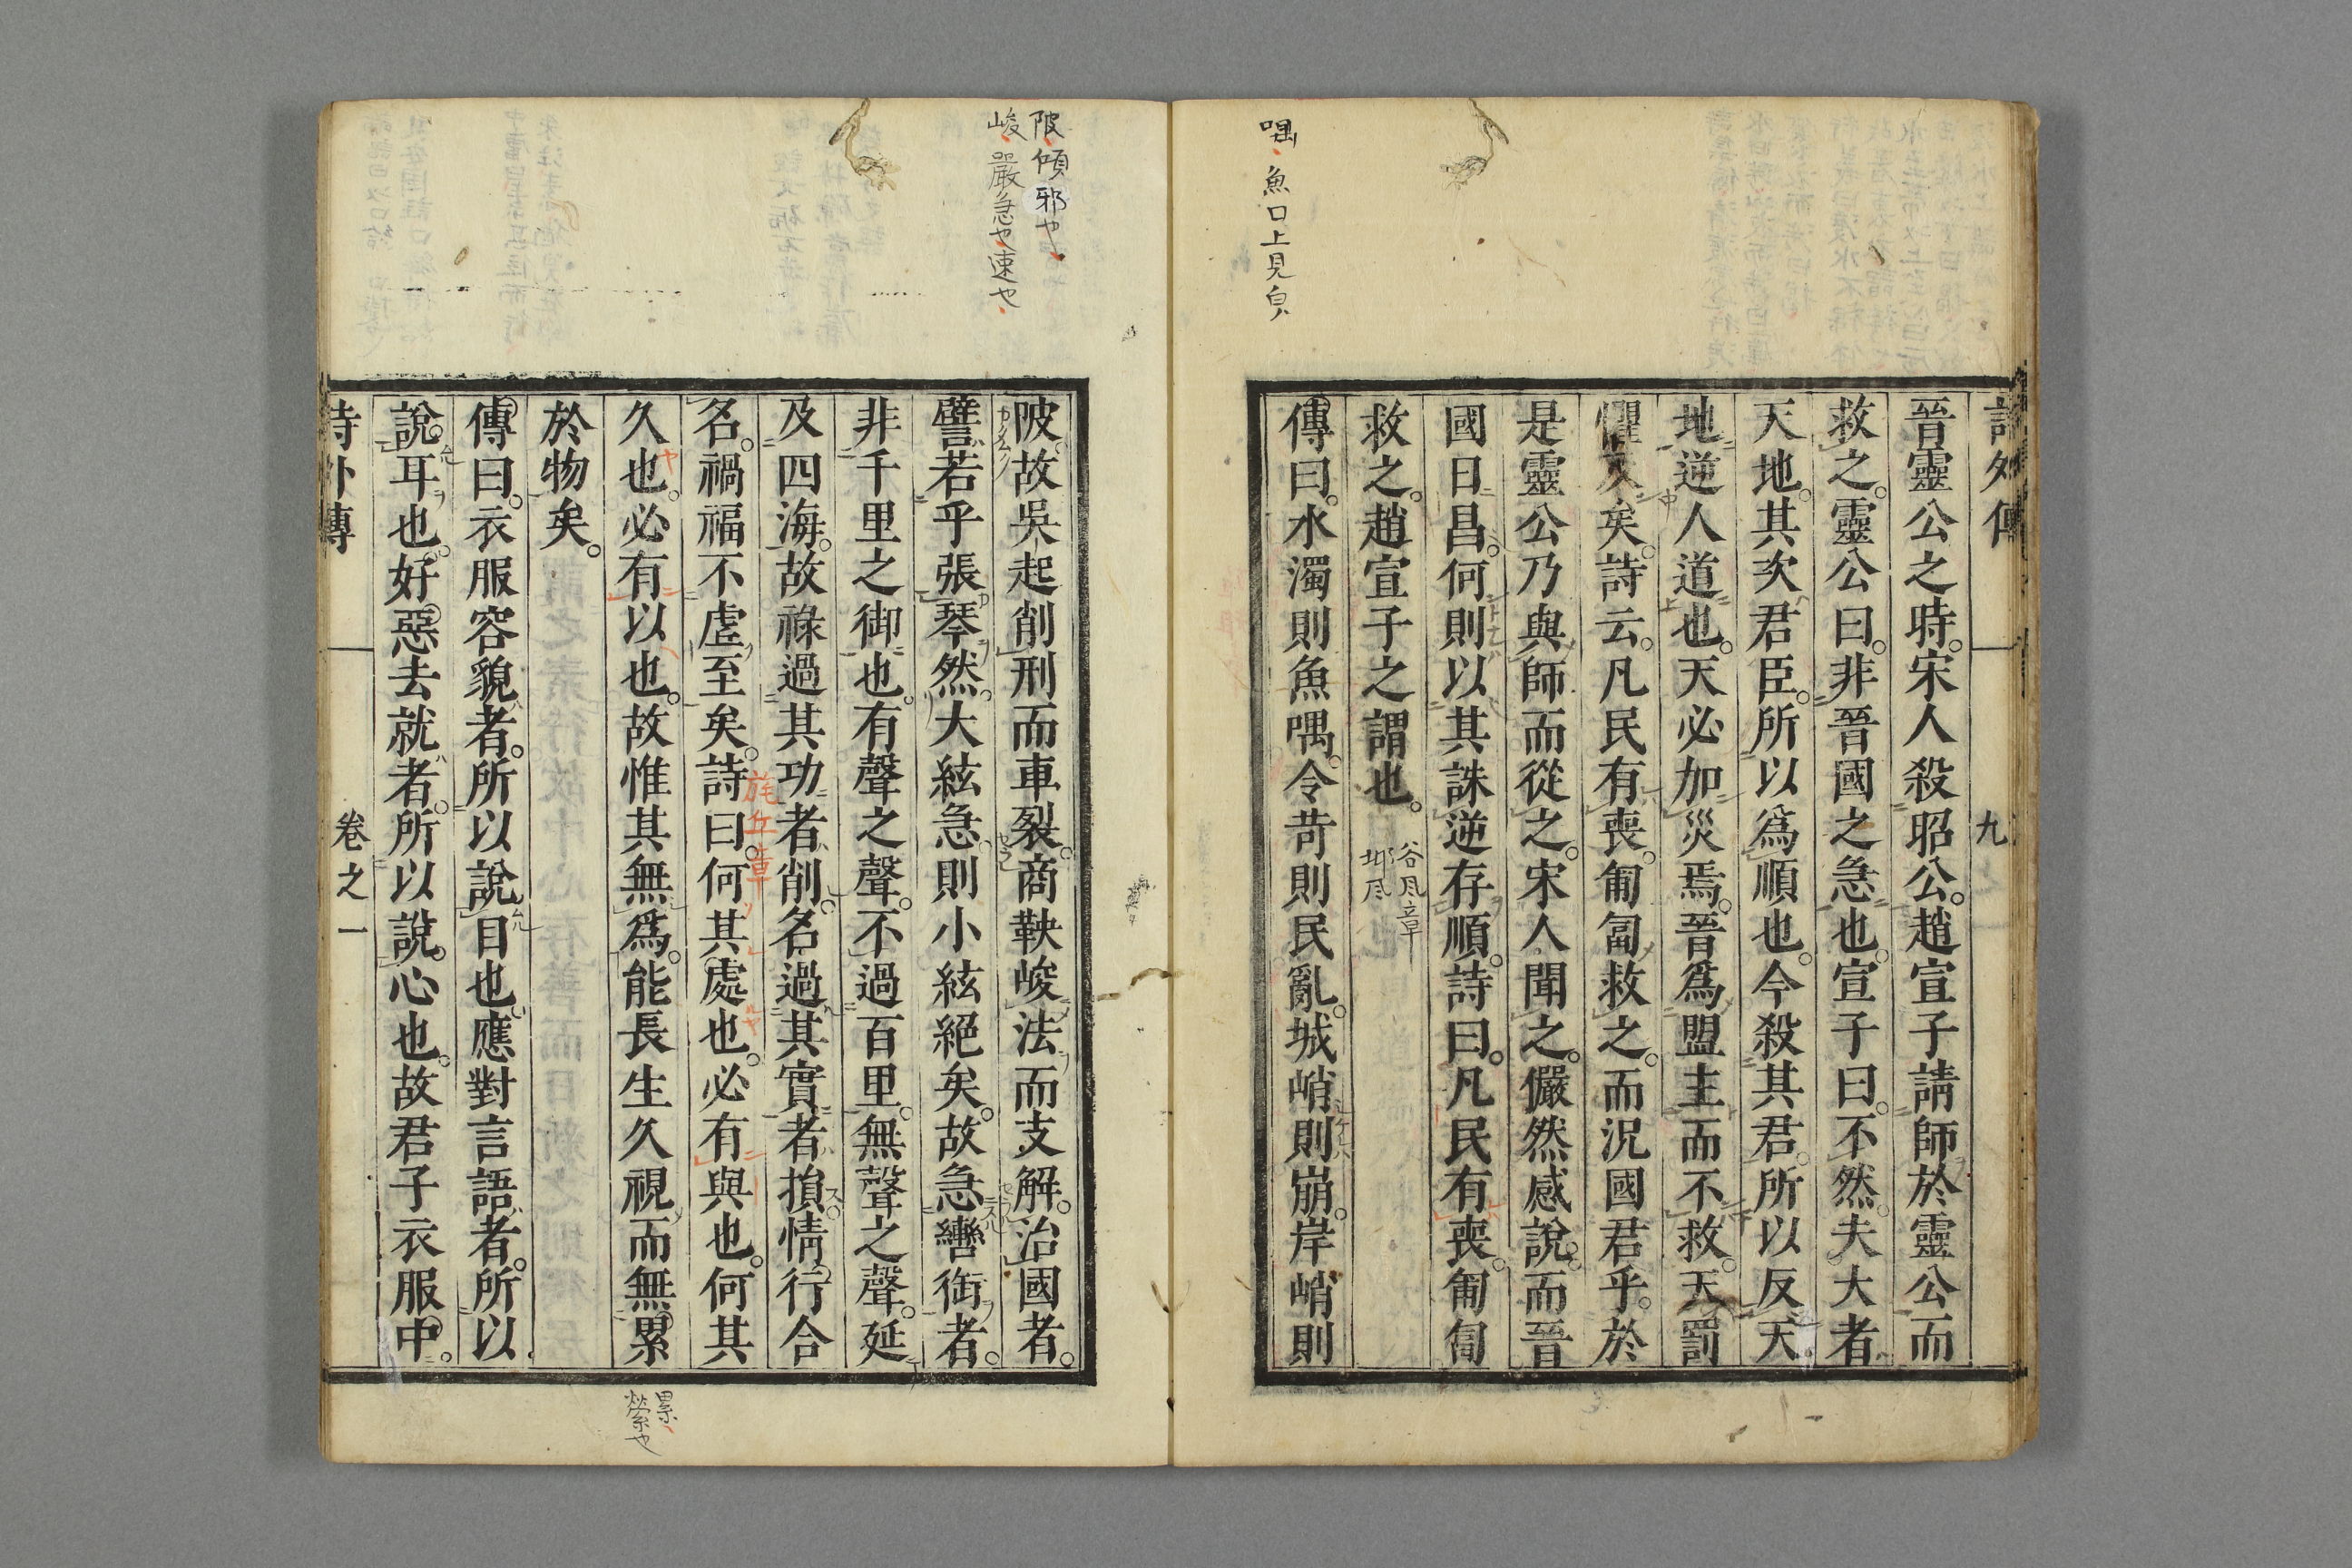 詩外傳
九
晉靈公之時宋人殺昭公。趙宣子請師於靈公而
救之。靈公曰。非晉國之急也。宣子曰。不然。夫大者
天地。其次君臣。所以爲順也。今殺其君。所以反天
地逆人道也。天必加災焉。晉爲盟主而不救。天罰
懼及矣。詩云。凡民有喪。匍匐救之。而況國君乎。於
是靈公乃與師而從之。宋人聞之。儼然感說。而晉
國日昌。何則以其誅逆存順。詩曰。凡民有喪。匍匐
救之。趙宣子之謂也。
谷風章
邶風
喁、魚口上見皃
傳曰。水濁則魚喁。令苛則民亂。城峭則崩。岸峭則
陂、傾邪也、
峻、嚴急也、速也、
陂。故吳起削刑而車裂。商鞅峻法而支解。治國者。
譬若乎張琴然。大絃急。則小絃絕矣。故急轡銜者。
非千里之御也。有聲之聲。不過百里。無聲之聲。延
及四海。故祿過其功者削。名過其實者損。情行合
名。禍福不虛至矣。詩曰。何其處也。必有與也。何其
旄丘章
久也。必有以也。故惟其無爲。能長生久視而無累
累、
縈也
於物矣。
傳曰。衣服容貌者。所以說目也。應對言語者。所以
說耳也。好惡去就者。所以說心也。故君子衣服中。
詩外傳
卷之一